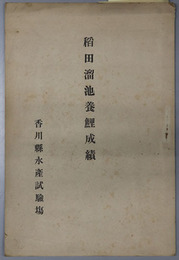 稻田溜池養鯉成績
香川縣水產試驗場